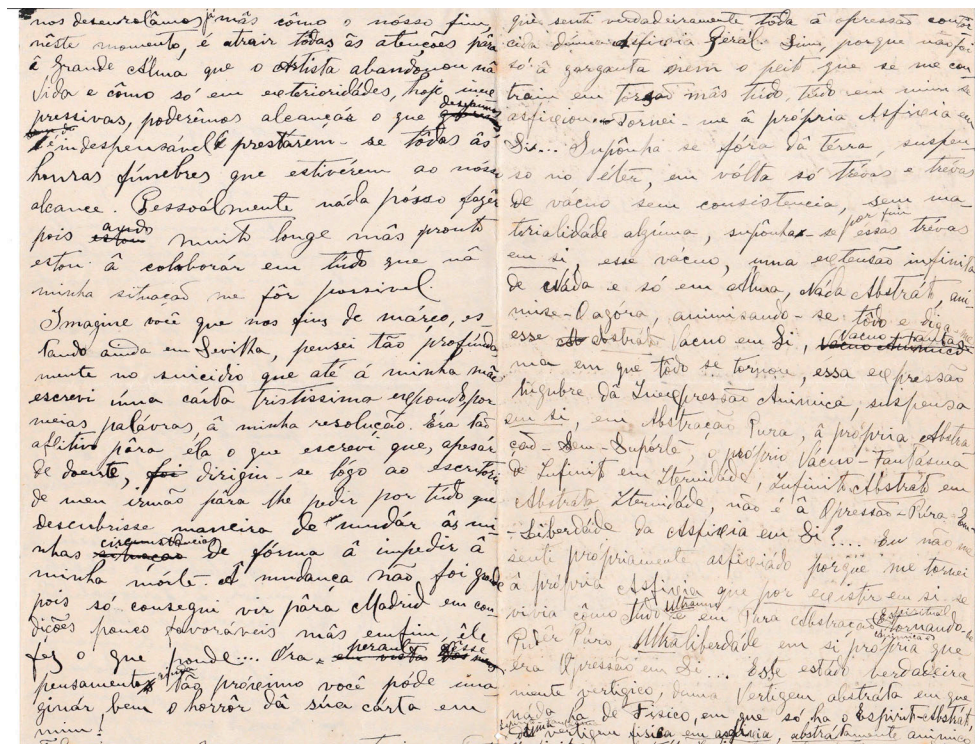 nos desenrolâmos já mâs cômo o nósso fim,
nêste momento, é atrair tôdas âs atenções pâra
â grande Alma que o Artista abandonou nâ
Vida e cômo só em exterioridádes, hoje, inex
pressivas, poderêmos alcançar o que
é indespensável prestárem-se tôdas âs
honras fúnebres que estivérem ao nósso
alcance. Pessoálmente náda pósso fazêr
pois muito longe mâs pronto
estou â coloborár em tudo que nâ
minha situação me fôr possivel.
Imagine você que nos fins de março, es
tando ainda em Sevilha, pensei tão profunda
mente no suicidio que até á minha mãe
escrevi uma carta tristissima expondo, por
meias palávras, â minha resolução. Éra tão
aflitivo pâra éla o que escreví que, apesár
de doente, foi dirigiu-se logo ao escritório
de meu irmão pâra lhe pedir por tudo que
descubrisse maneira de mudár âs mi
nhas circumstâncias situação de fórma â impedir â
minha mórte. A mudança não foi grande
pois só consegui vir pâra Madrid em con
dições pouco favoráveis mâs emfim êle
fez o que poude... Ora perante êsse
pensamento tão próximo você póde ima
ginár bem o horror dâ súa cárta em
mim!
que senti verdadeiramente tôda â opressão conhe
cida dúma Asfixia Gerál. Sim, porque não foi
só â garganta nem o peito que se me con
traiu em torsão mâs tudo, tudo em mim se
asfixiou. Tornei-me â própria Asfixia em
Si... Supônha-se fóra dâ térra, suspen
so no éter, em vólta só trévas e trévas
de vácuo sem consistencia, sem ma
terialidade algúma, supônha-se por fim essas trévas
em si, esse vácuo, uma extensão infinita
de Náda e só em Alma, Náda Abstráto, ani
mise-O agóra, animisando-se tôdo e diga-me
esse Abstráto Vacuo em Si, Vacuo Fantas
ma em que tôdo se tornou, essa expressão
lúgubre dâ Inexpressão Animica, suspensa
em si, em Abstração Pura, â própria Abstra
ção-Sem-Supórte, o próprio Vácuo-Fantásma
de Infinito em Eternidáde, Infinito Abstráto em
Abstráta Eternidáde, não é â Opressão-Púra
-Liberdáde da Asfixia em Si?... Eu não me
senti propriamente asfixiádo porque me tornei
â própria Asfixia que por existir em si se
vivia cômo Tudo em Pura Abstração
Puder Puro Ultraliberdade em si própria que
éra Opressão em Si... Este estádo verdadeira
mente vertigico, duma Vertigem abstráta em que
náda ha de Fisico, em que só ha o Espirito-Abstráto
vertigem fisica em asfixia, abstrátamente animico